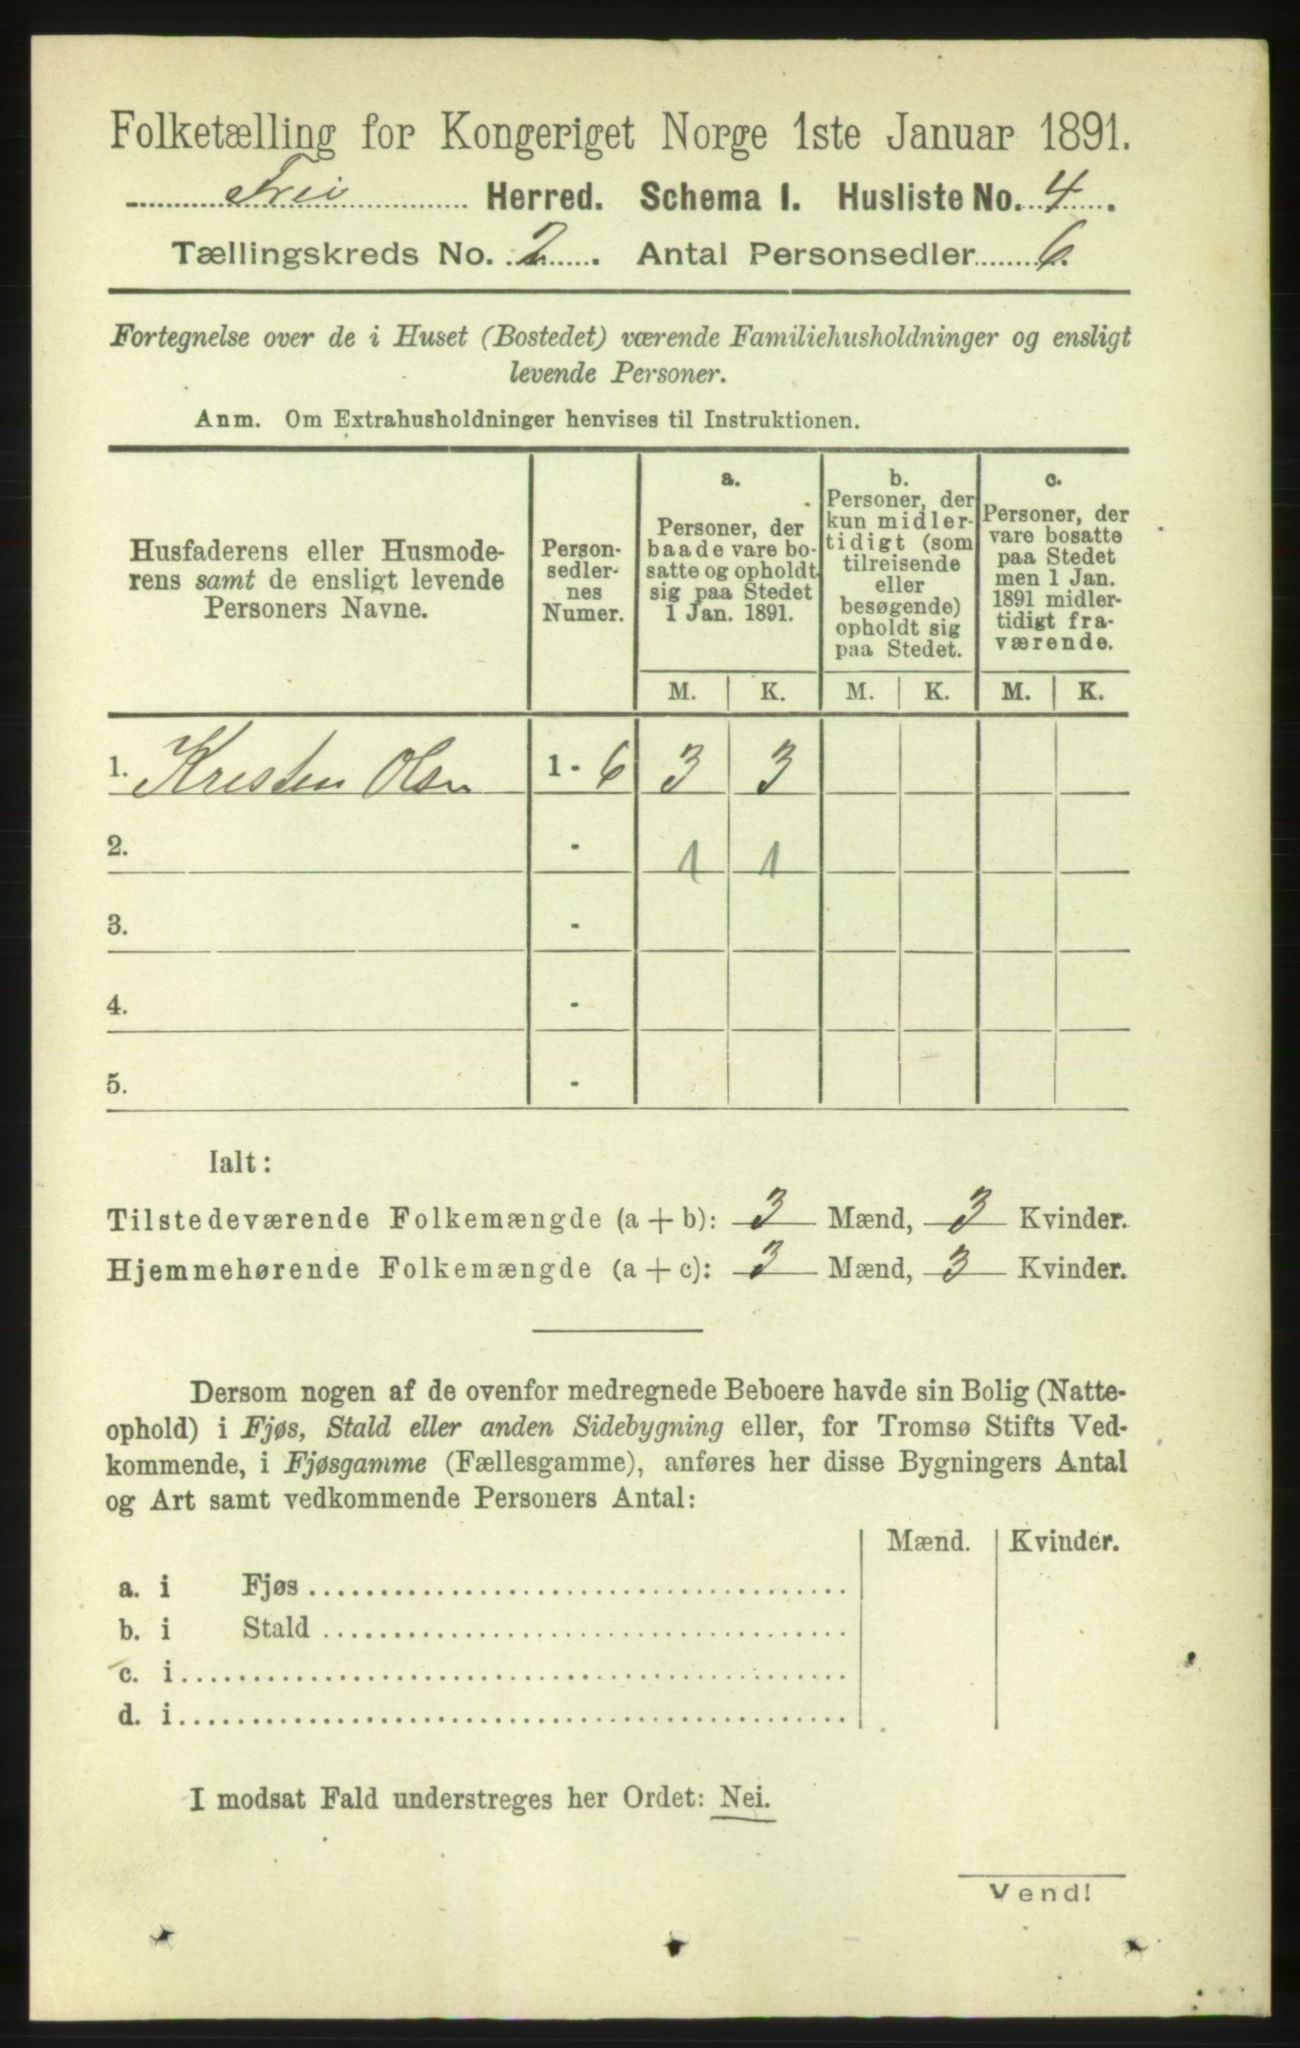 Folketælling for Kongeriget Norge 1ste Januar 1891.
Frei Herred. Schema I. Husliste No. 4.
Tællingskreds No. 2. Antal Personsedler 6.
Fortegnelse over de i Huset (Bostedet) værende Familiehusholdninger og ensligt
levende Personer.
Anm. Om Extrahusholdninger henvises til Instruktionen.
Husfaderens eller Husmode-
rens samt de ensligt levende
Personers Navne.
Person-
sedler-
nes
Numer.
a.
Personer, der
baade vare bo-
satte og opholdt
sig paa Stedet
1 Jan. 1891.
b.
Personer, der
kun midler-
tidigt (som
tilreisende
eller
besøgende)
opholdt sig
paa Stedet.
c.
Personer, der
vare bosatte
paa Stedet
men 1 Jan.
1891 midler-
tidigt fra-
værende.
M. K. M. K. M. K.
1. Kristen Olsen 1 - 6 3 3
2. - 1 1
3. -
4. -
5. -
Ialt:
Tilstedeværende Folkemængde (a + b): 3 Mænd, 3 Kvinder.
Hjemmehørende Folkemængde (a + c): 3 Mænd, 3 Kvinder.
Dersom nogen af de ovenfor medregnede Beboere havde sin Bolig (Natte-
ophold) i Fjøs, Stald eller anden Sidebygning eller, for Tromsø Stifts Ved-
kommende, i Fjøsgamme (Fællesgamme), anføres her disse Bygningers Antal
og Art samt vedkommende Personers Antal:
Mænd. Kvinder.
a. i Fjøs
b. i Stald
c. i
d. i
I modsat Fald understreges her Ordet: Nei.
Vend!